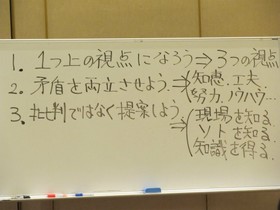 1. 1つ上の視点になろう⇒3つの視点
2. 矛盾を両立させよう.→知恵.工夫
努力.ノウハウ…
3. 批判ではなく提案しよう
⇒現場を知る
ソトを知る.
知識を得る.